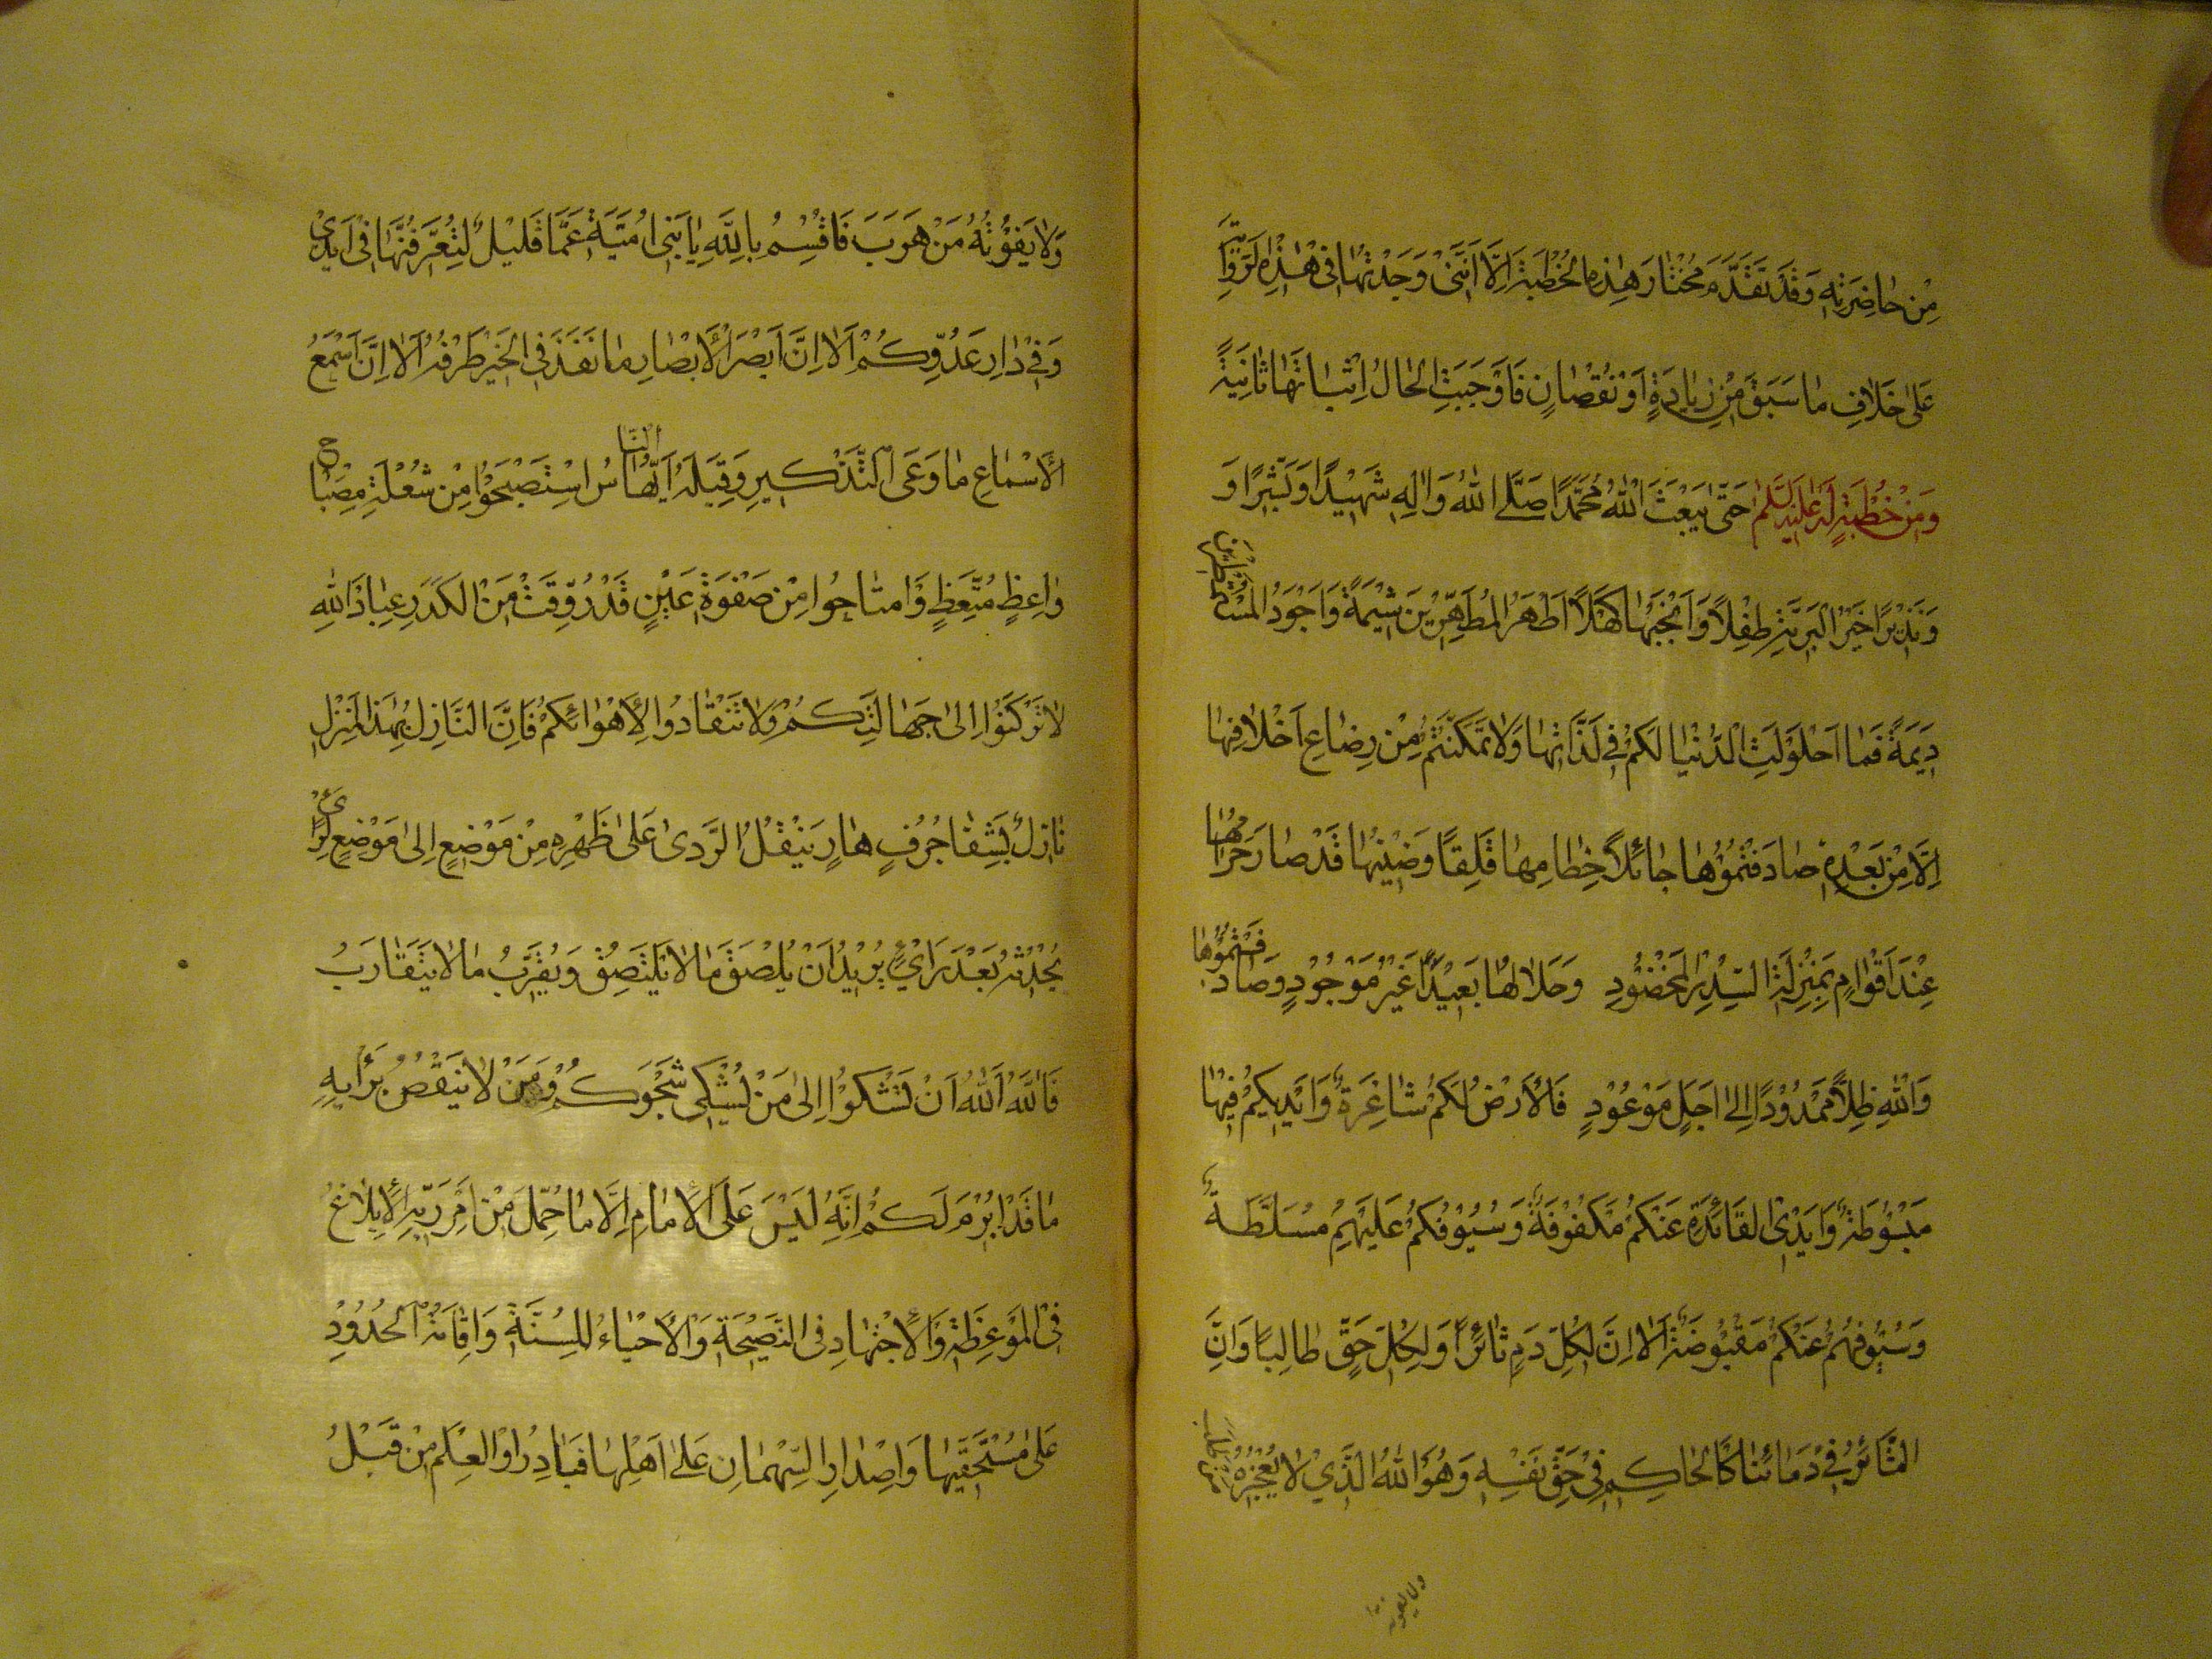 مِنْ حٰاضِرَتِهِ وَقَدْ تَقَدَّمَ مُخْتٰارَ هٰذِهِ الخُطْبَةِ اِلَّا اَنَّنٖى وَجَدْتُهٰا فٖى هٰذِهِ الرِّوٰايَةِ
عَلٰى خَلٰافِ مٰا سَبَقَ مِنْ زِيٰادَةٍ اَوْ نُقْصٰانٍ فَاَوْجَبَتِ الحٰالُ اِثْبٰاتَهٰا ثٰانِيَةً
وَمِنْ خُطْبَةٍ لَهُ عَلَيْهِ السَّلٰمُ حَتّٰى بَعَثَ اللّٰهُ مُحَمَّدًا صَلَّى اللّٰهُ وَاٰلِهٖ شَهٖيْدًا وَبَشٖيْرًا وَ
وَنَذٖيْرًا خَيْرَ الْبَرِيَّةِ طِفْلًا وَاَنْجَبَهٰا كَهْلًا اَطْهَرَ المُطَهَّرٖيْنَ شٖيْمَةً وَاَجْوَدُ المُسْتَمْطَرٖيْنَ
دٖيْمَةً فَمَا احْلَوْلَتِ الدُّنْيٰا لَكُمْ فٖى لَذَّاتِهٰا وَلٰا تَمَكَّنْتُمْ مِنْ رِضٰاعِ اَخْلٰافِهٰا
اِلَّا مِنْ بَعْدِهٖ صٰادَفْتُمُوْهٰا جٰائِلًا خِطٰامِهٰا قَلِقًا وَضٖيْنُهٰا قَدْ صٰارَ حَرٰامُهٰا
عِنْدَ اَقْوٰامٍ بِمَنْزِلَةِ السِّدْرِ المَخْضُوْدِ وَحَلٰالُهٰا بَعٖيْدًا غَيْرَ مَوْجُوْدٍ وَصٰادَفْتُمُوْهٰا
وَاللّٰهِ ظِلًّا مَمْدُوْدًا اِلٰى اَجَلٍ مَوْعُوْدٍ فَالْاَرْضُ لَكُمْ شٰاغِرَةٌ وَاَيْدٖيْكُمْ فٖيْهٰا
مَبْسُوْطَةٌ وَاَيْدِى القٰائَدَةِ عَنْكُمْ مَكْفُوْفَةٌ وَسُيُوْفُكُمْ عَلَيْهِمْ مُسَلَّطَةٌ
وَسُيُوْفُهُمْ عَنْكُمْ مَقْبُوْضَةٌ اَلٰا اِنَّ لِكُلِّ دَمٍ ثٰائِرًا وَلِكُلِّ حَقٍّ طٰالِبًا وَاِنَّ
الثّٰائِرُ فٖى دِمٰائِنٰا كَالحٰاكِمِ فٖى حَقِّ نَفْسِهٖ وَهُوَ اللّٰهُ الَّذٖيْ لٰا يُعْجِزُهُ مَنْ طَلَبَ
ولا يفوته
وَلٰا يَفُوْتُهُ مَنْ هَرَبَ فَاُقْسِمُ بِاللّٰهِ يٰا بَنٖى اُمَيَّةَ عَمَّا قَلٖيْلٌ لَتَعْرَفُنَّهٰا فٖى اَيْدٖيْ
وَفٖيْ دٰارِ عَدُوِّكُمْ اَلٰا اِنَّ اَبْصَرَ الْاَبْصٰارِ مٰا نَفَذَ فِى الخَيْرِ طَرْفُهُ اَلٰا اِنَّ اَسْمَعُ
الْاَسْمٰاعِ مٰا وَعَى التَّذْكٖيْرِ وَقَبِلَهُ اَيُّهَا النّٰاسُ اسْتَصْبِحُوْا مِنْ شُعْلَةِ مِصْبٰاحِ
وٰاعِظٍ مُتَّعِظٍ وَامْتٰاحُوا مِنْ صَفْوَةِ عَيْنٍ قَدْ رُوِّقَتْ مِنَ الكَدَرِ عِبٰادَ اللّٰهِ
لٰا تَرْكَنُوْا اِلٰى جَهٰالَتِكُمْ وَلٰا تَنْقٰادُوا لِاَهْوٰائِكُمْ فَاِنَّ النّٰازِلَ بِهٰذَا المَنْزِلِ
نٰازِلٌ بِشَفٰا جُرُفٍ هٰارٍ يَنْقُلُ الرَّدٰى عَلٰى ظَهْرِهٖ مِنْ مَوْضِعٍ اِلٰى مَوْضِعٍ لِرَأْيٍ
يُحْدِثُهُ بَعْدَ رَأْيٍ يُرٖيْدُ اَنْ يُلْصِقَ مٰا لٰا يَلْتَصِقُ وَيُقَرِّبُ مٰا لٰا يَتَقٰارَبُ
فَاللّٰهَ اللّٰهَ اَنْ تَشْكُوْا اِلٰى مَنْ لٰا يُشْكٖى شَجْوَكُمْ وَمَنْ لٰا يَنْقُضُ بِرَأْيِهٖ
مٰا قَدْ اُبْرِمَ لَكُمْ اِنَّهُ لَيْسَ عَلَى الْاِمٰامِ اِلَّا مٰا حُمِّلَ مِنْ اَمْرِ رَبِّهِ الْاِبْلٰاغُ
فِى المَوْعِظَةِ وَالْاِجْتِهٰادِ فِى النَّصٖيْحَةِ وَالْاِحْيٰاءُ لِلسُّنَّةِ وَاِقٰامَةُ الحُدُوْدِ
عَلٰى مُسْتَحِقّٖيْهٰا وَاِصْدٰارِ السُّهْمٰانِ عَلٰى اَهْلِهٰا فَبٰادِرُوا العِلْمَ مِنْ قَبْلِ